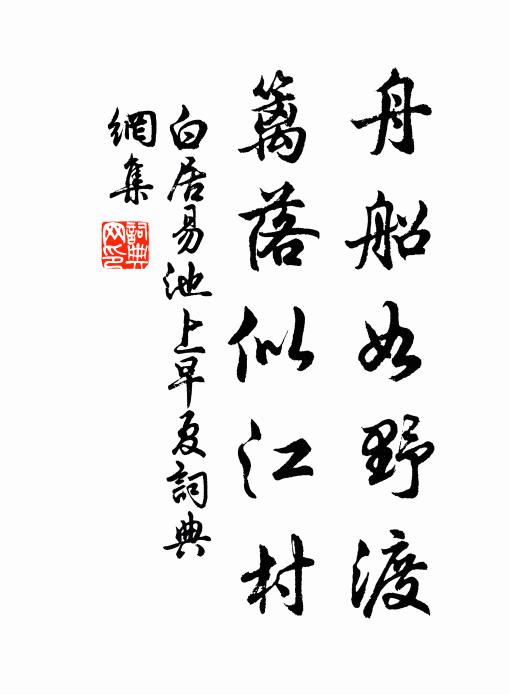 舟船如野渡
籬落似江村
白居易池上早夏詞典
網集
詞典
网印